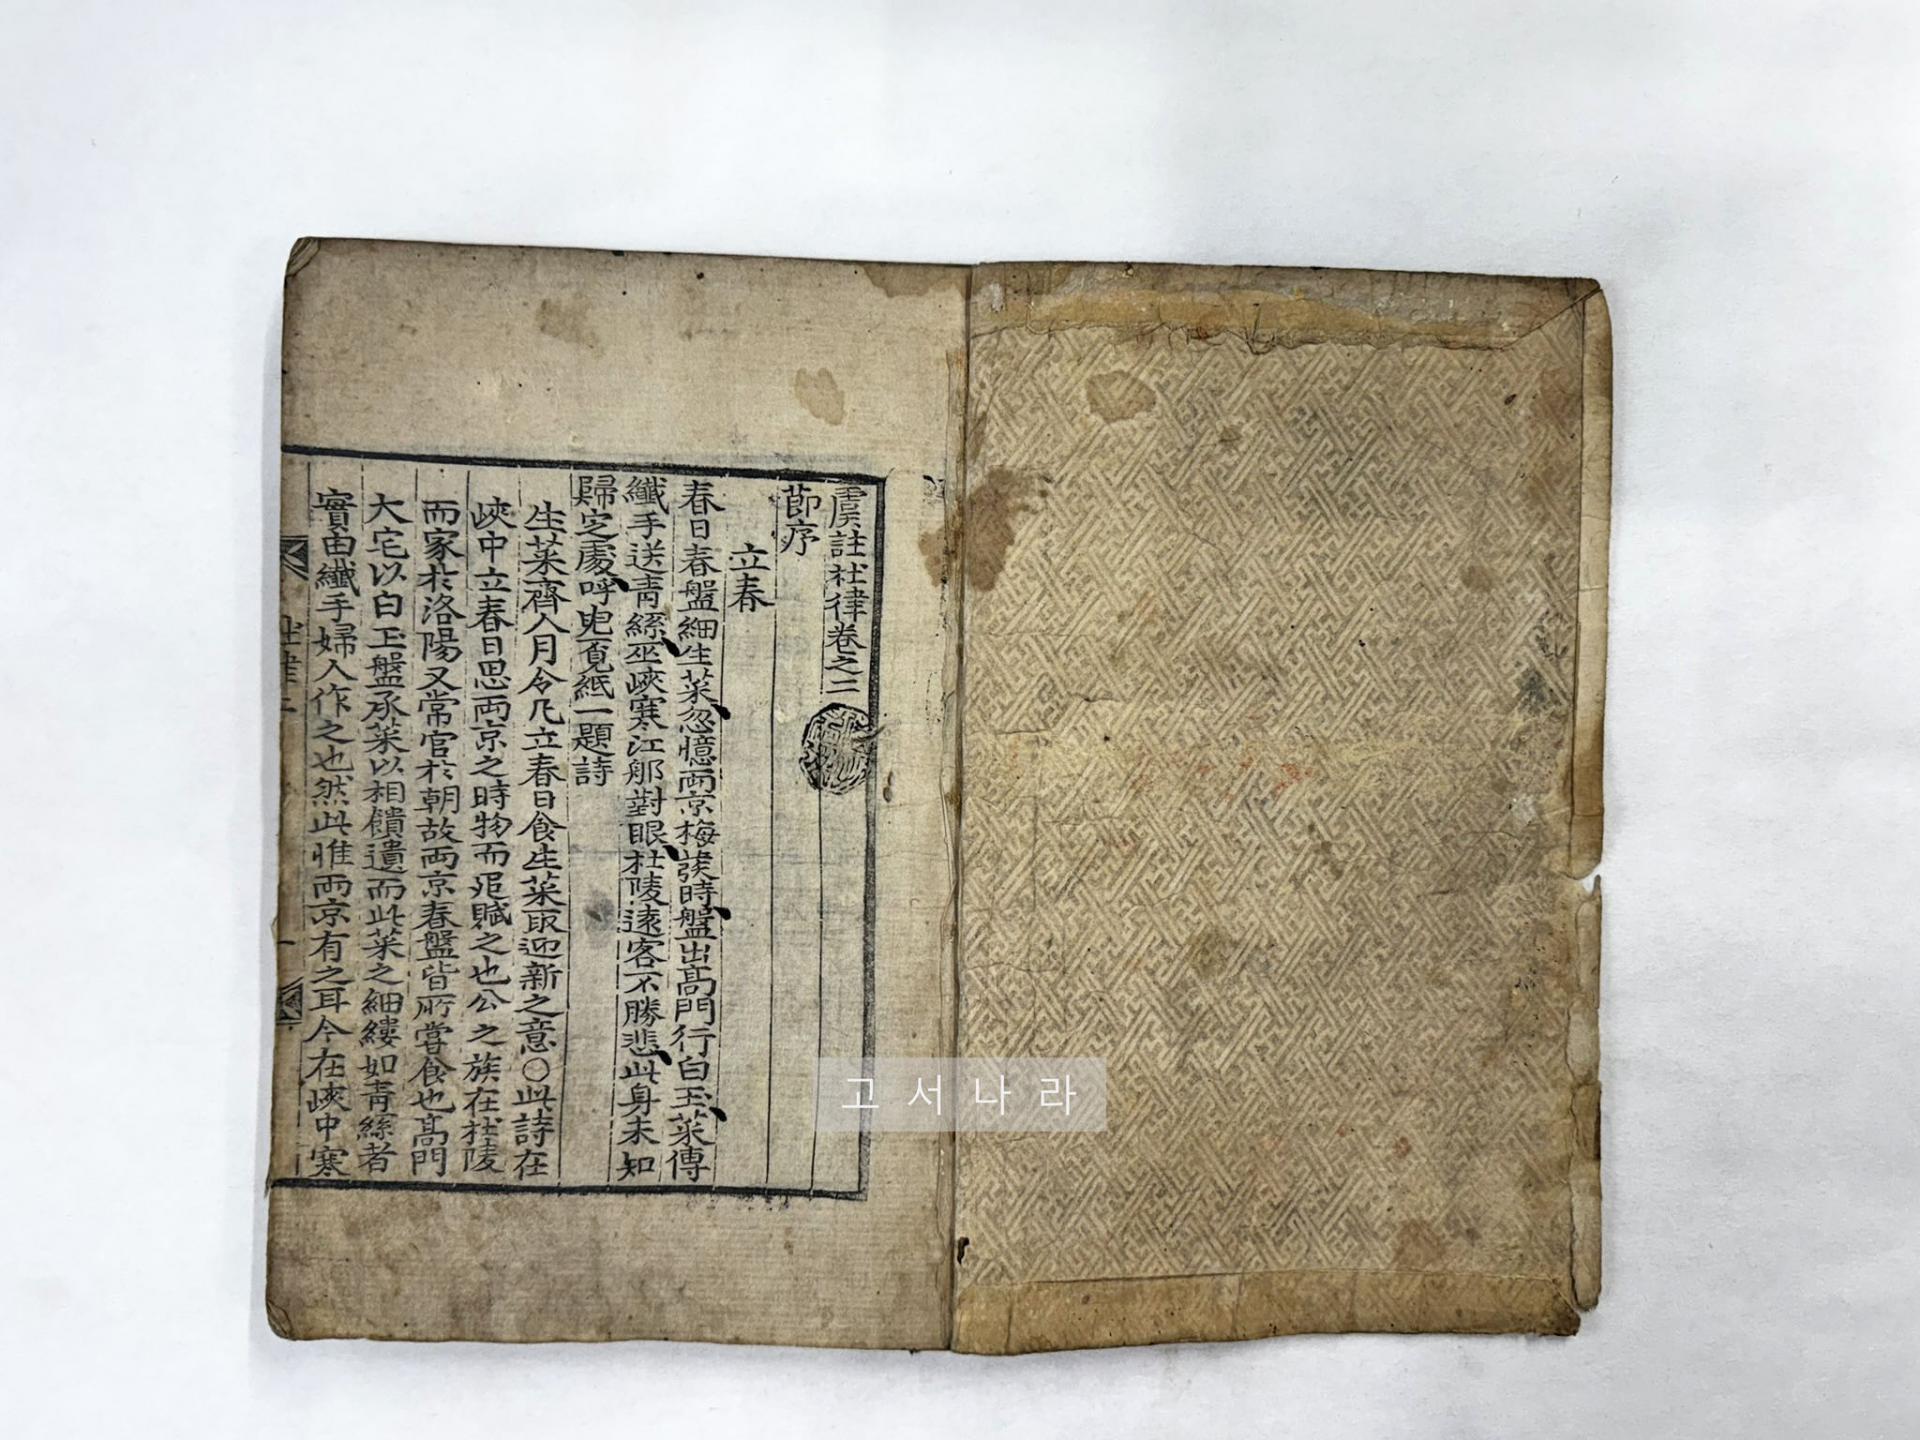 虞註杜律卷之二
節序
立春
春日春盤細生菜忽憶兩京梅發時盤出高門行白玉菜傳
纖手送青絲巫峽寒江那對眼杜陵遠客不勝悲此身未知
歸定處呼兒覓紙一題詩
生菜齊人月令凡立春日食生菜取迎新之意○此詩在
峽中立春日思兩京之時物而追賦之也公之族在杜陵
而家於洛陽又常官於朝故兩京春盤皆所嘗食也高門
大宅以白玉盤承菜以相饋遺而此菜之細縷如青絲者
實由纖手婦人作之也然此惟兩京有之耳今在峽中寒
杜律二
고서나라